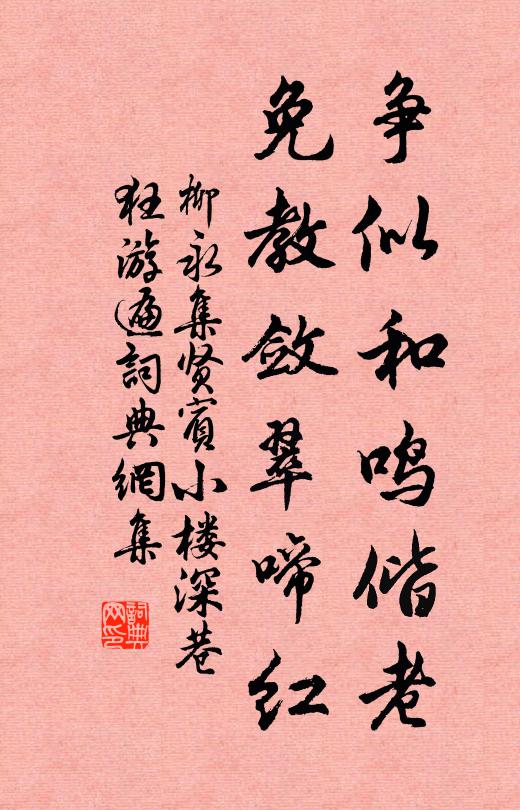 争似和鸣偕老
免教敛翠啼红
柳永集贤宾小楼深巷
狂游遍詞典網集
詞典网印